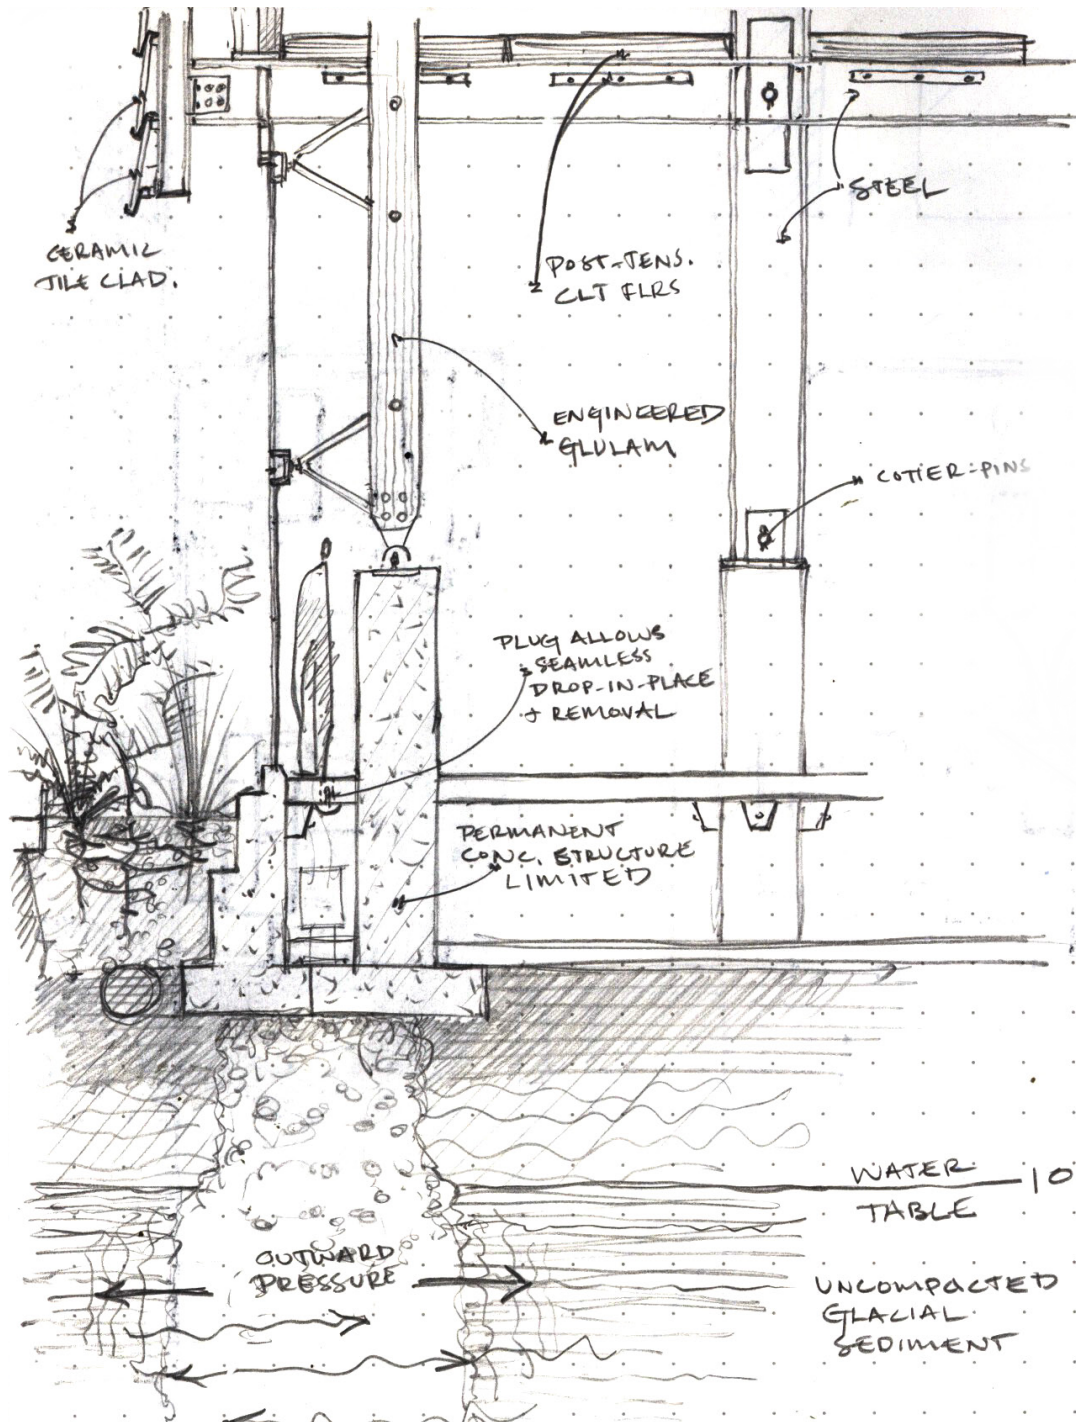 CERAMIC
TILE CLAD.
STEEL
POST-TENS.
CLT FLRS
ENGINEERED
GLULAM
COTTER-PINS
PLUG ALLOWS
SEAMLESS
DROP-IN-PLACE
+ REMOVAL
PERMANENT
CONC. STRUCTURE
LIMITED
WATER
TABLE
10
OUTWARD
PRESSURE
UNCOMPACTED
GLACIAL
SEDIMENT